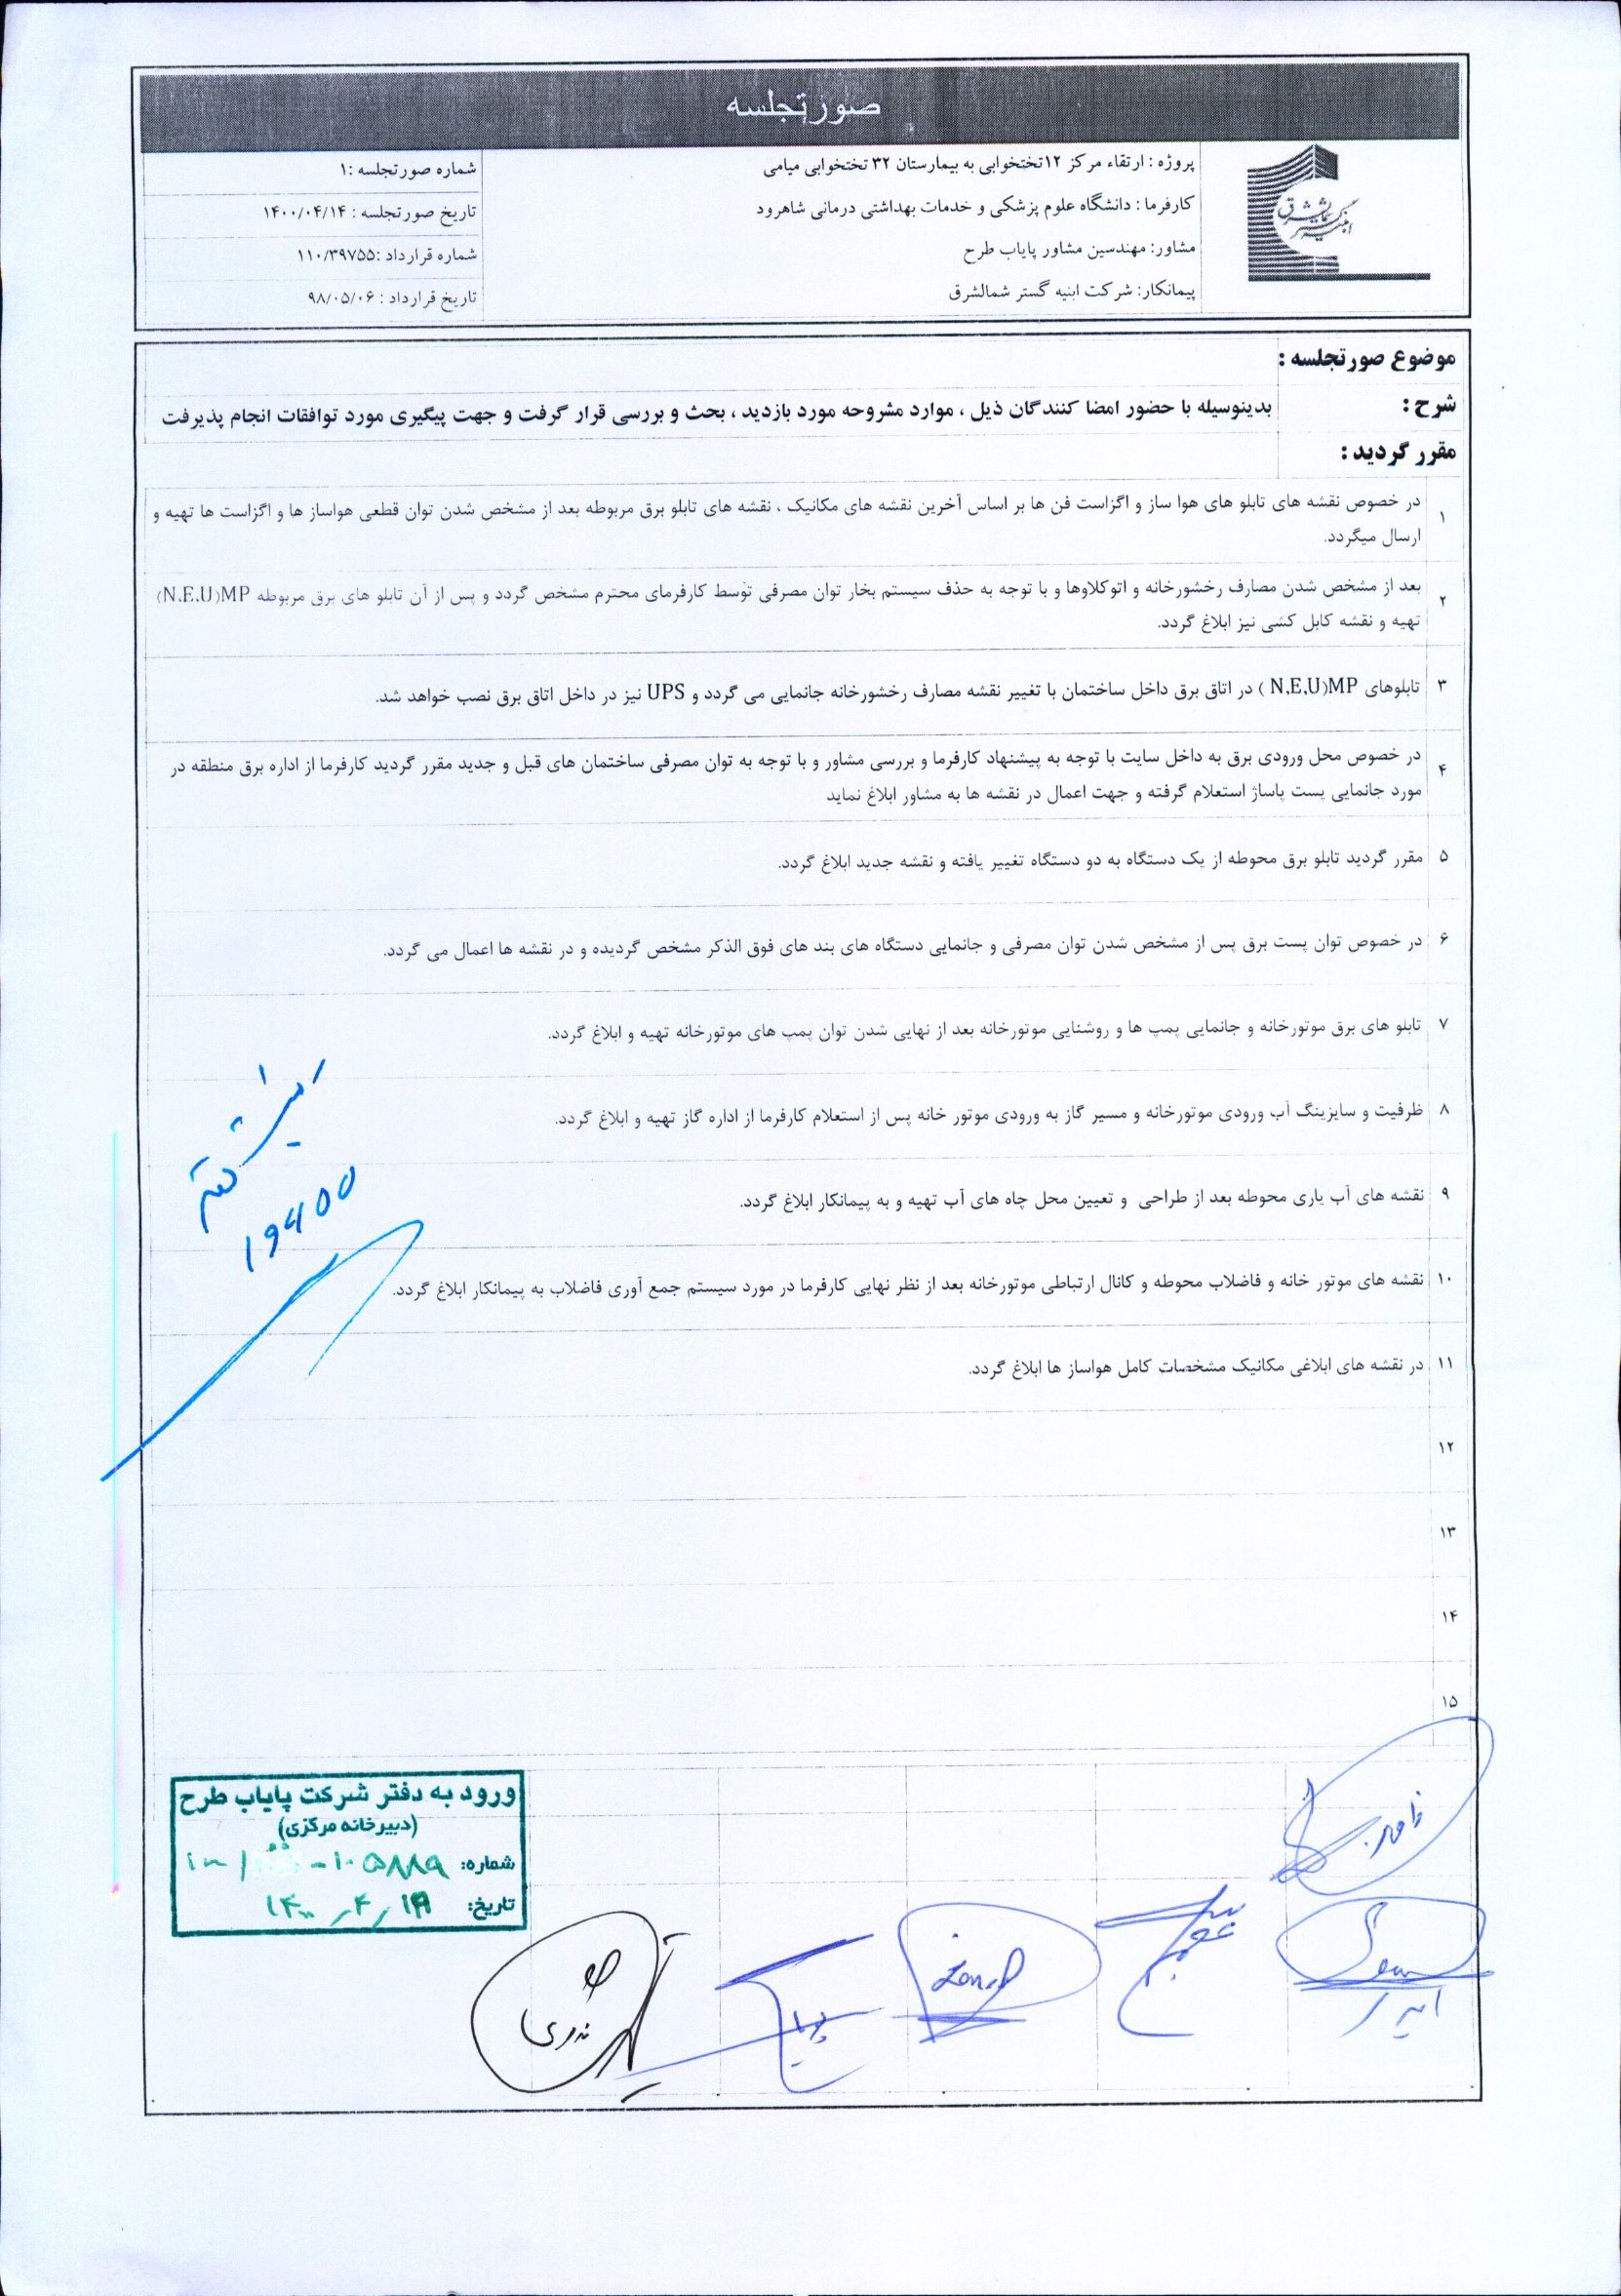 صورتجلسه
پروژه : ارتقاء مرکز ۱۲تختخوابی به بیمارستان ۳۲ تختخوابی میامی
کارفرما : دانشگاه علوم پزشکی و خدمات بهداشتی درمانی شاهرود
مشاور: مهندسین مشاور پایاب طرح
پیمانکار: شرکت ابنیه گستر شمالشرق
شماره صورتجلسه :۱
تاریخ صورتجلسه : ۱۴۰۰/۰۴/۱۴
شماره قرارداد :۱۱۰/۳۹۷۵۵
تاریخ قرارداد : ۹۸/۰۵/۰۶
موضوع صورتجلسه :
شرح : بدینوسیله با حضور امضا کنندگان ذیل ، موارد مشروحه مورد بازدید ، بحث و بررسی قرار گرفت و جهت پیگیری مورد توافقات انجام پذیرفت
مقرر گردید :
۱ در خصوص نقشه های تابلو های هوا ساز و اگزاست فن ها بر اساس آخرین نقشه های مکانیک ، نقشه های تابلو برق مربوطه بعد از مشخص شدن توان قطعی هواساز ها و اگزاست ها تهیه و
ارسال میگردد.
۲ بعد از مشخص شدن مصارف رخشورخانه و اتوکلاوها و با توجه به حذف سیستم بخار توان مصرفی توسط کارفرمای محترم مشخص گردد و پس از آن تابلو های برق مربوطه N,E,U)MP)
تهیه و نقشه کابل کشی نیز ابلاغ گردد.
۳ تابلوهای N,E,U)MP ) در اتاق برق داخل ساختمان با تغییر نقشه مصارف رخشورخانه جانمایی می گردد و UPS نیز در داخل اتاق برق نصب خواهد شد.
۴ در خصوص محل ورودی برق به داخل سایت با توجه به پیشنهاد کارفرما و بررسی مشاور و با توجه به توان مصرفی ساختمان های قبل و جدید مقرر گردید کارفرما از اداره برق منطقه در
مورد جانمایی پست پاساژ استعلام گرفته و جهت اعمال در نقشه ها به مشاور ابلاغ نماید
۵ مقرر گردید تابلو برق محوطه از یک دستگاه به دو دستگاه تغییر یافته و نقشه جدید ابلاغ گردد.
۶ در خصوص توان پست برق پس از مشخص شدن توان مصرفی و جانمایی دستگاه های بند های فوق الذکر مشخص گردیده و در نقشه ها اعمال می گردد.
۷ تابلو های برق موتورخانه و جانمایی پمپ ها و روشنایی موتورخانه بعد از نهایی شدن توان پمپ های موتورخانه تهیه و ابلاغ گردد.
۸ ظرفیت و سایزینگ آب ورودی موتورخانه و مسیر گاز به ورودی موتور خانه پس از استعلام کارفرما از اداره گاز تهیه و ابلاغ گردد.
۹ نقشه های آب یاری محوطه بعد از طراحی و تعیین محل چاه های آب تهیه و به پیمانکار ابلاغ گردد.
۱۰ نقشه های موتور خانه و فاضلاب محوطه و کانال ارتباطی موتورخانه بعد از نظر نهایی کارفرما در مورد سیستم جمع آوری فاضلاب به پیمانکار ابلاغ گردد.
۱۱ در نقشه های ابلاغی مکانیک مشخصات کامل هواساز ها ابلاغ گردد.
۱۲
۱۳
۱۴
۱۵
ورود به دفتر شرکت پایاب طرح
(دبیرخانه مرکزی)
شماره:
تاریخ: ۱۴۰۰
نوری